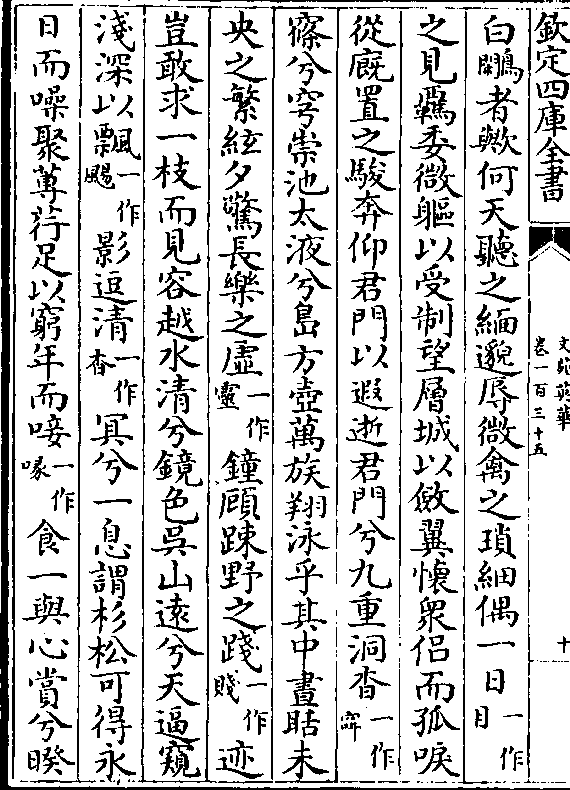 欽定四庫全書
文苑英華
卷一百三十五
十
白鷳者歟何天聽之緬邈辱微禽之瑣細偶一日一作目
之見羈委微軀以受制望層城以斂翼懷衆侣而孤唳
從廐置之駿奔仰君門以遐逝君門兮九重洞杳一作窅
窱兮穹崇池太液兮島方壺萬族翔泳乎其中晝聒未
央之繁絃夕驚長樂之虚一作靈鐘顧踈野之踐一作賤迹
豈敢求一枝而見容越水清兮鏡色吳山遠兮天逼窺
淺深以飄一作颺影逗清一作杳冥兮一息謂杉松可得永
日而噪聚蓴荇足以窮年而唼一作喙食一與心賞兮暌